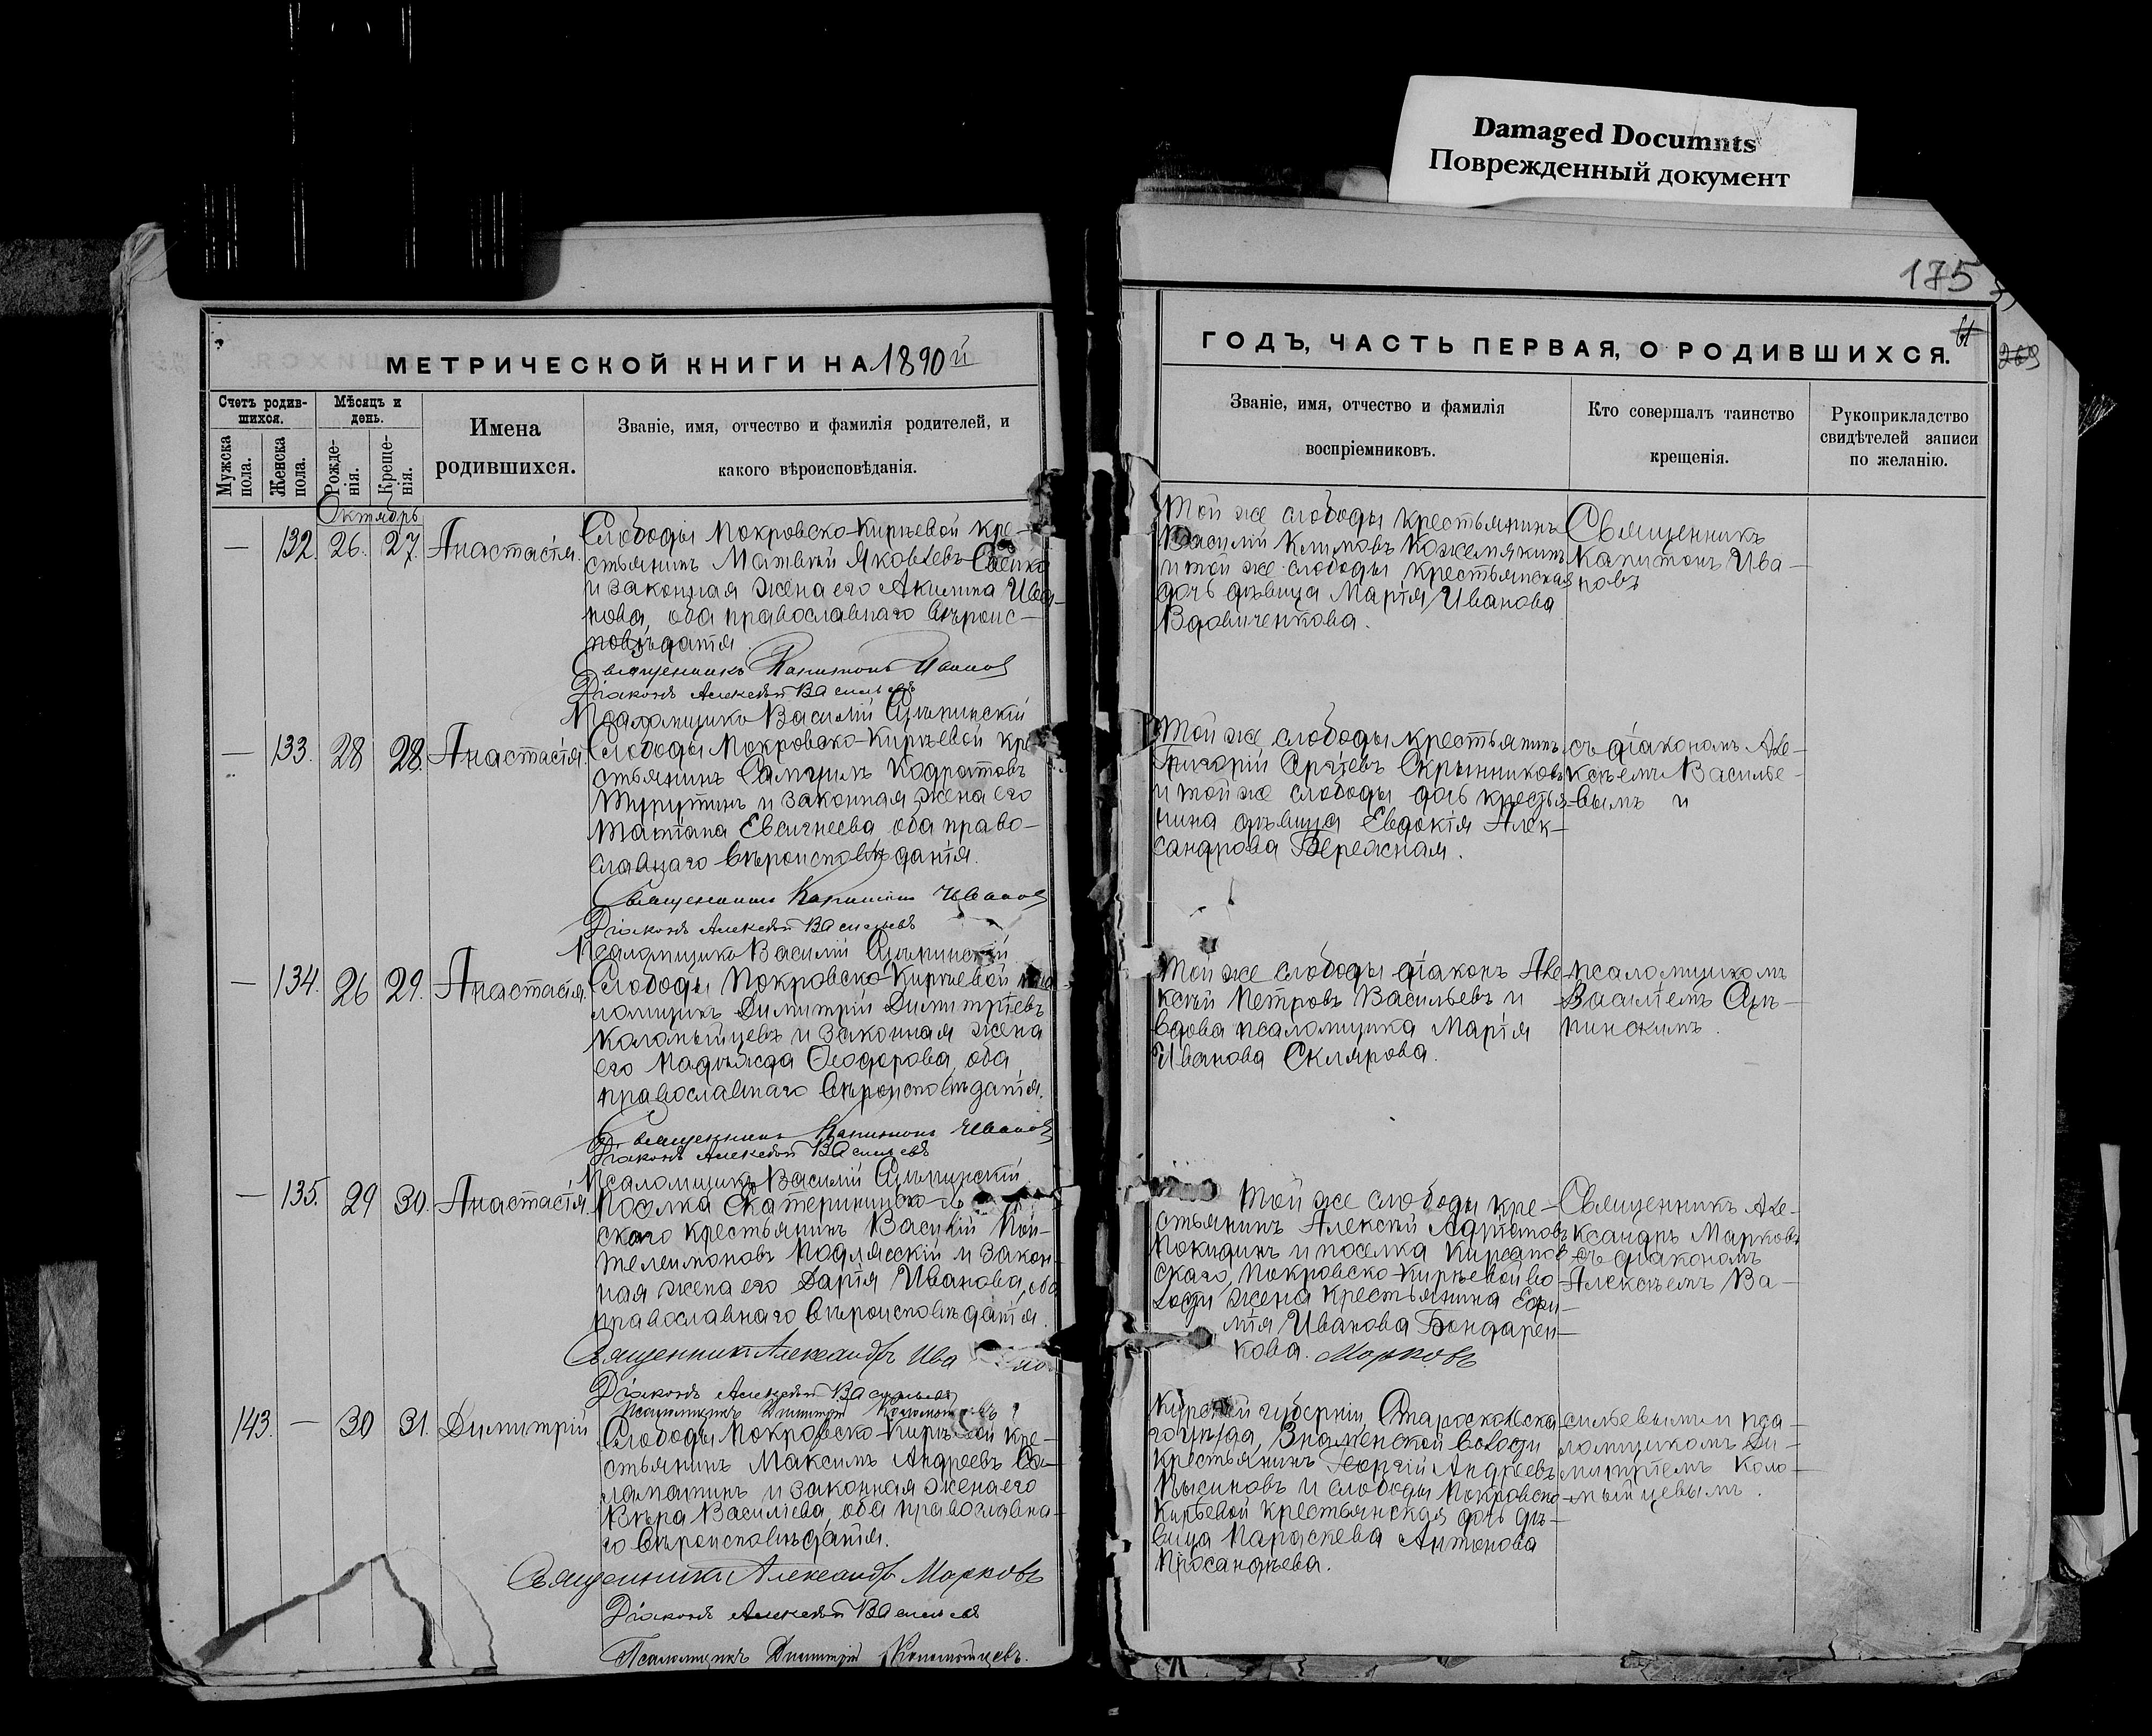 Damaged Documnts
Поврежденный документ
175
МЕТРИЧЕСКОЙ КНИГИ НА 1890й
ГОДЪ, ЧАСТЬ ПЕРВАЯ, О РОДИВШИХСЯ.
269
Счетъ родив-
шихся.
Мѣсяцъ и
день.
Мужска
пола.
Женска
пола.
Рожде-
нія.
Креще-
нія.
Имена
родившихся.
Званіе, имя, отчество и фамилія родителей, и
какого вѣроисповѣданія.
Званіе, имя, отчество и фамилія
воспріемниковъ.
Кто совершалъ таинство
крещенія.
Рукоприкладство
свидѣтелей записи
по желанію.
Октябрь
— 132. 26. 27. Анастасія.
Слободы Покровско-Кирѣевой кре-
стьянинъ Матвѣй Яковлевъ
и законная жена его Акилина Ива-
нова, оба православнаго вѣроис-
повѣданія.
Священникъ Капитонъ Ивановъ
Діаконъ Алексѣй Васильевъ
Псаломщикъ Василій
Той же слободы крестьянинъ
Василій Климовъ Кожемякинъ
и той же слободы крестьянская
дочь дѣвица Марія Иванова
Вдовиченкова.
Священникъ
Капитонъ Ива-
новъ
— 133. 28 28. Анастасія.
Слободы Покровско-Кирѣевой кре-
стьянинъ Самуилъ Кодратовъ
и законная жена его
Татіана Евсигнеева оба право-
славнаго вѣроисповѣданія.
Священникъ Капитонъ Ивановъ
Діаконъ Алексѣй Васильевъ
Псаломщикъ Василій
Той же слободы крестьянинъ
Григорій Сргіевъ Скрынниковъ
и той же слободы дочь крестья-
нина дѣвица Евдокія Алек-
сандрова Бережная.
съ діакономъ Але-
ксѣемъ Василье-
вымъ и
— 134. 26 29. Анастасія.
Слободы Покровско-Кирѣевой пса-
ломщикъ Димитрій Димитріевъ
Коломыйцевъ и законная жена
его Надѣжда Ѳеодорова, оба
православнаго вѣроисповѣданія.
Священникъ Капитонъ Ивановъ
Діаконъ Алексѣй Васильевъ
Псаломщикъ Василій
Той же слободы діаконъ Але-
ксѣй Петровъ Васильевъ и
вдова псаломщика Марія
Иванова Склярова.
псаломщикомъ
Василіемъ
— 135. 29 30. Анастасія
Посѣлка
скаго крестьянинъ Василій Пон-
телеимоновъ Подлясскій и закон-
ная жена его Дарія Иванова, оба
православнаго вѣроисповѣданія.
Священникъ Александръ
Діаконъ Алексѣй Васильевъ
Псаломщикъ Димитрій
Той же слободы кре-
стьянинъ Алексѣй Адріановъ
Покидинъ и поселка Кирсанов-
скаго, Покровско-Кирѣевой во-
лости жена крестьянина Ефи-
мія Иванова Бондарен-
кова. Марковъ
Священникъ Але-
ксандръ Марковъ
съ діакономъ
Алексѣемъ Ва-
143. — 30 31. Димитрій
Слободы Покровско-Кирѣевой кре-
стьянинъ Максимъ Андреевъ Са-
ламатинъ и законная жена его
Вѣра Василіева, оба православна-
го вѣроисповѣданія.
Священникъ Александръ Марковъ
Діаконъ Алексѣй Васильевъ
Псаломщикъ Димитрій Коломойцевъ.
Курской губерніи, Старооскольска
го уѣзда, Знаменской волости
крестьянинъ Георгій Андреевъ
Лысиновъ и слободы Покровско-
Кирѣевой крестьянская дочь дѣ-
вица Параскева Антонова
сильевымъ и пса-
ломщикомъ Ди-
митріемъ Коло-
мыйцевымъ.